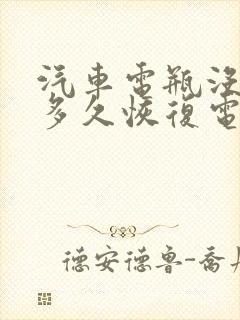 汽車電瓶沒
多久恢復電
德安德魯-喬